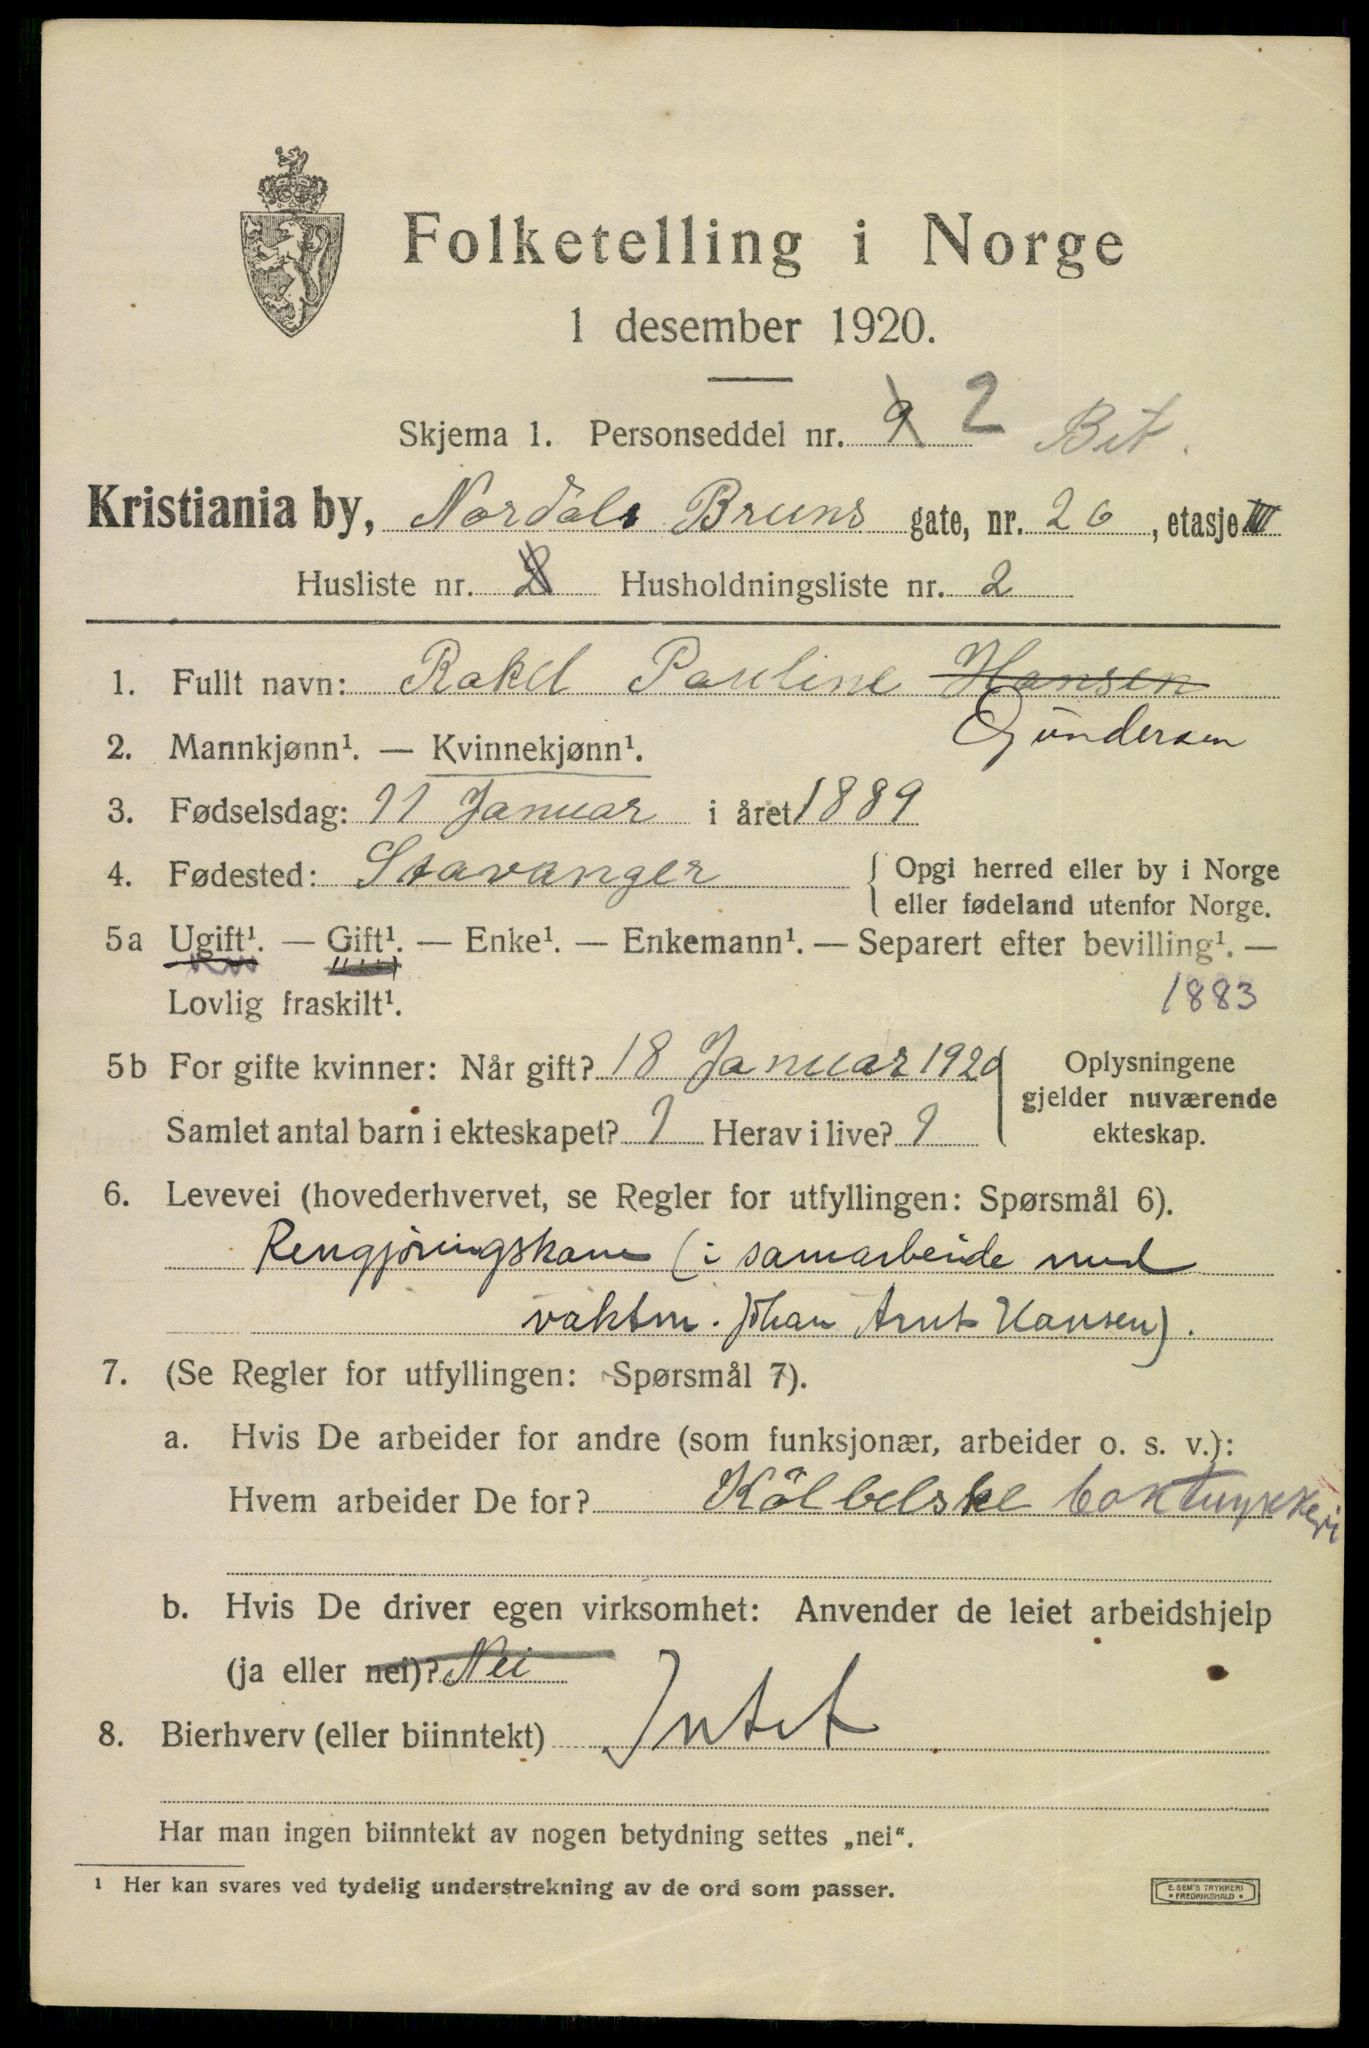 Folketelling i Norge
1 desember 1920.
Skjema 1. Personseddel nr. 9 2 Bet.
Kristiania by, Nordals Bruns gate, nr. 26, etasje III
Husliste nr. 2 Husholdningsliste nr. 2
1. Fullt navn: Rakel Pauline Hansen
Gundersen
2. Mannkjønn¹. — Kvinnekjønn¹.
3. Fødselsdag: 11 Januar i året 1889
4. Fødested: Stavanger { Opgi herred eller by i Norge
eller fødeland utenfor Norge.
5a Ugift¹. — Gift¹. — Enke¹. — Enkemann¹. — Separert efter bevilling¹. —
Lovlig fraskilt¹. 1883
5b For gifte kvinner: Når gift? 18 Januar 1920
Samlet antal barn i ekteskapet? 1 Herav i live? 1
Oplysningene
gjelder nuværende
ekteskap.
6. Levevei (hovederhvervet, se Regler for utfyllingen: Spørsmål 6).
Rengjøringskone (i samarbeide med
vaktm. Johan Arnt Hansen).
7. (Se Regler for utfyllingen: Spørsmål 7).
a. Hvis De arbeider for andre (som funksjonær, arbeider o. s. v.):
Hvem arbeider De for? Kölbelske boktrykkeri
b. Hvis De driver egen virksomhet: Anvender de leiet arbeidshjelp
(ja eller nei)? Nei
8. Bierhverv (eller biinntekt) Intet
Har man ingen biinntekt av nogen betydning settes „nei“.
¹ Her kan svares ved tydelig understrekning av de ord som passer.
E. SEM'S TRYKKERI
FREDRIKSHALD